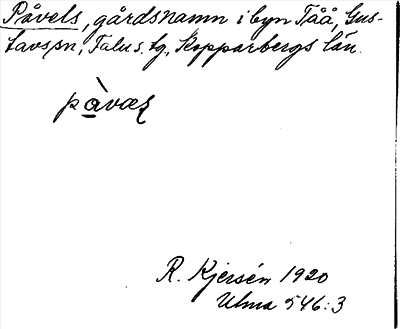 Påvels, gårdsnamn i byn Tåå, Gus-
tavs sn, Falu s. tg, Kopparbergs län.
pàvæl
R. Kjersén 1920
Ulma 546:3